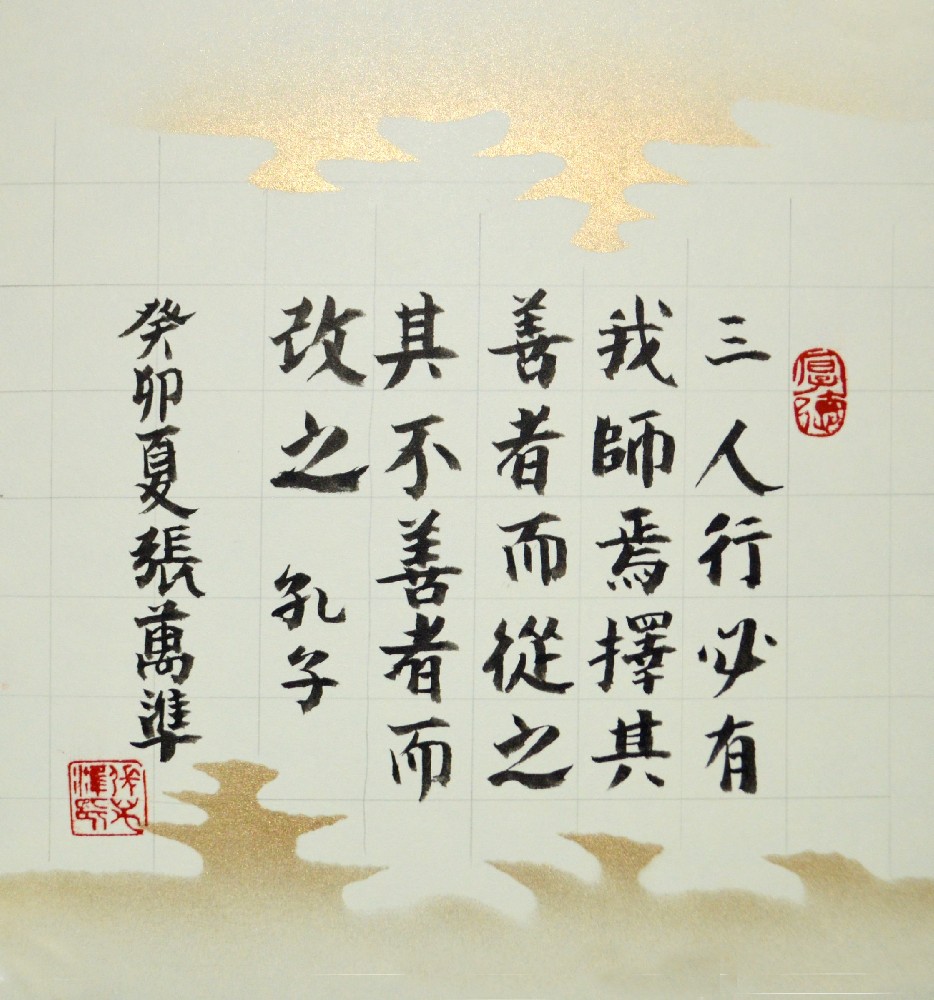 三人行必有
我師焉擇其
善者而從之
其不善者而
改之 孔子
癸卯夏張萬準
厚德